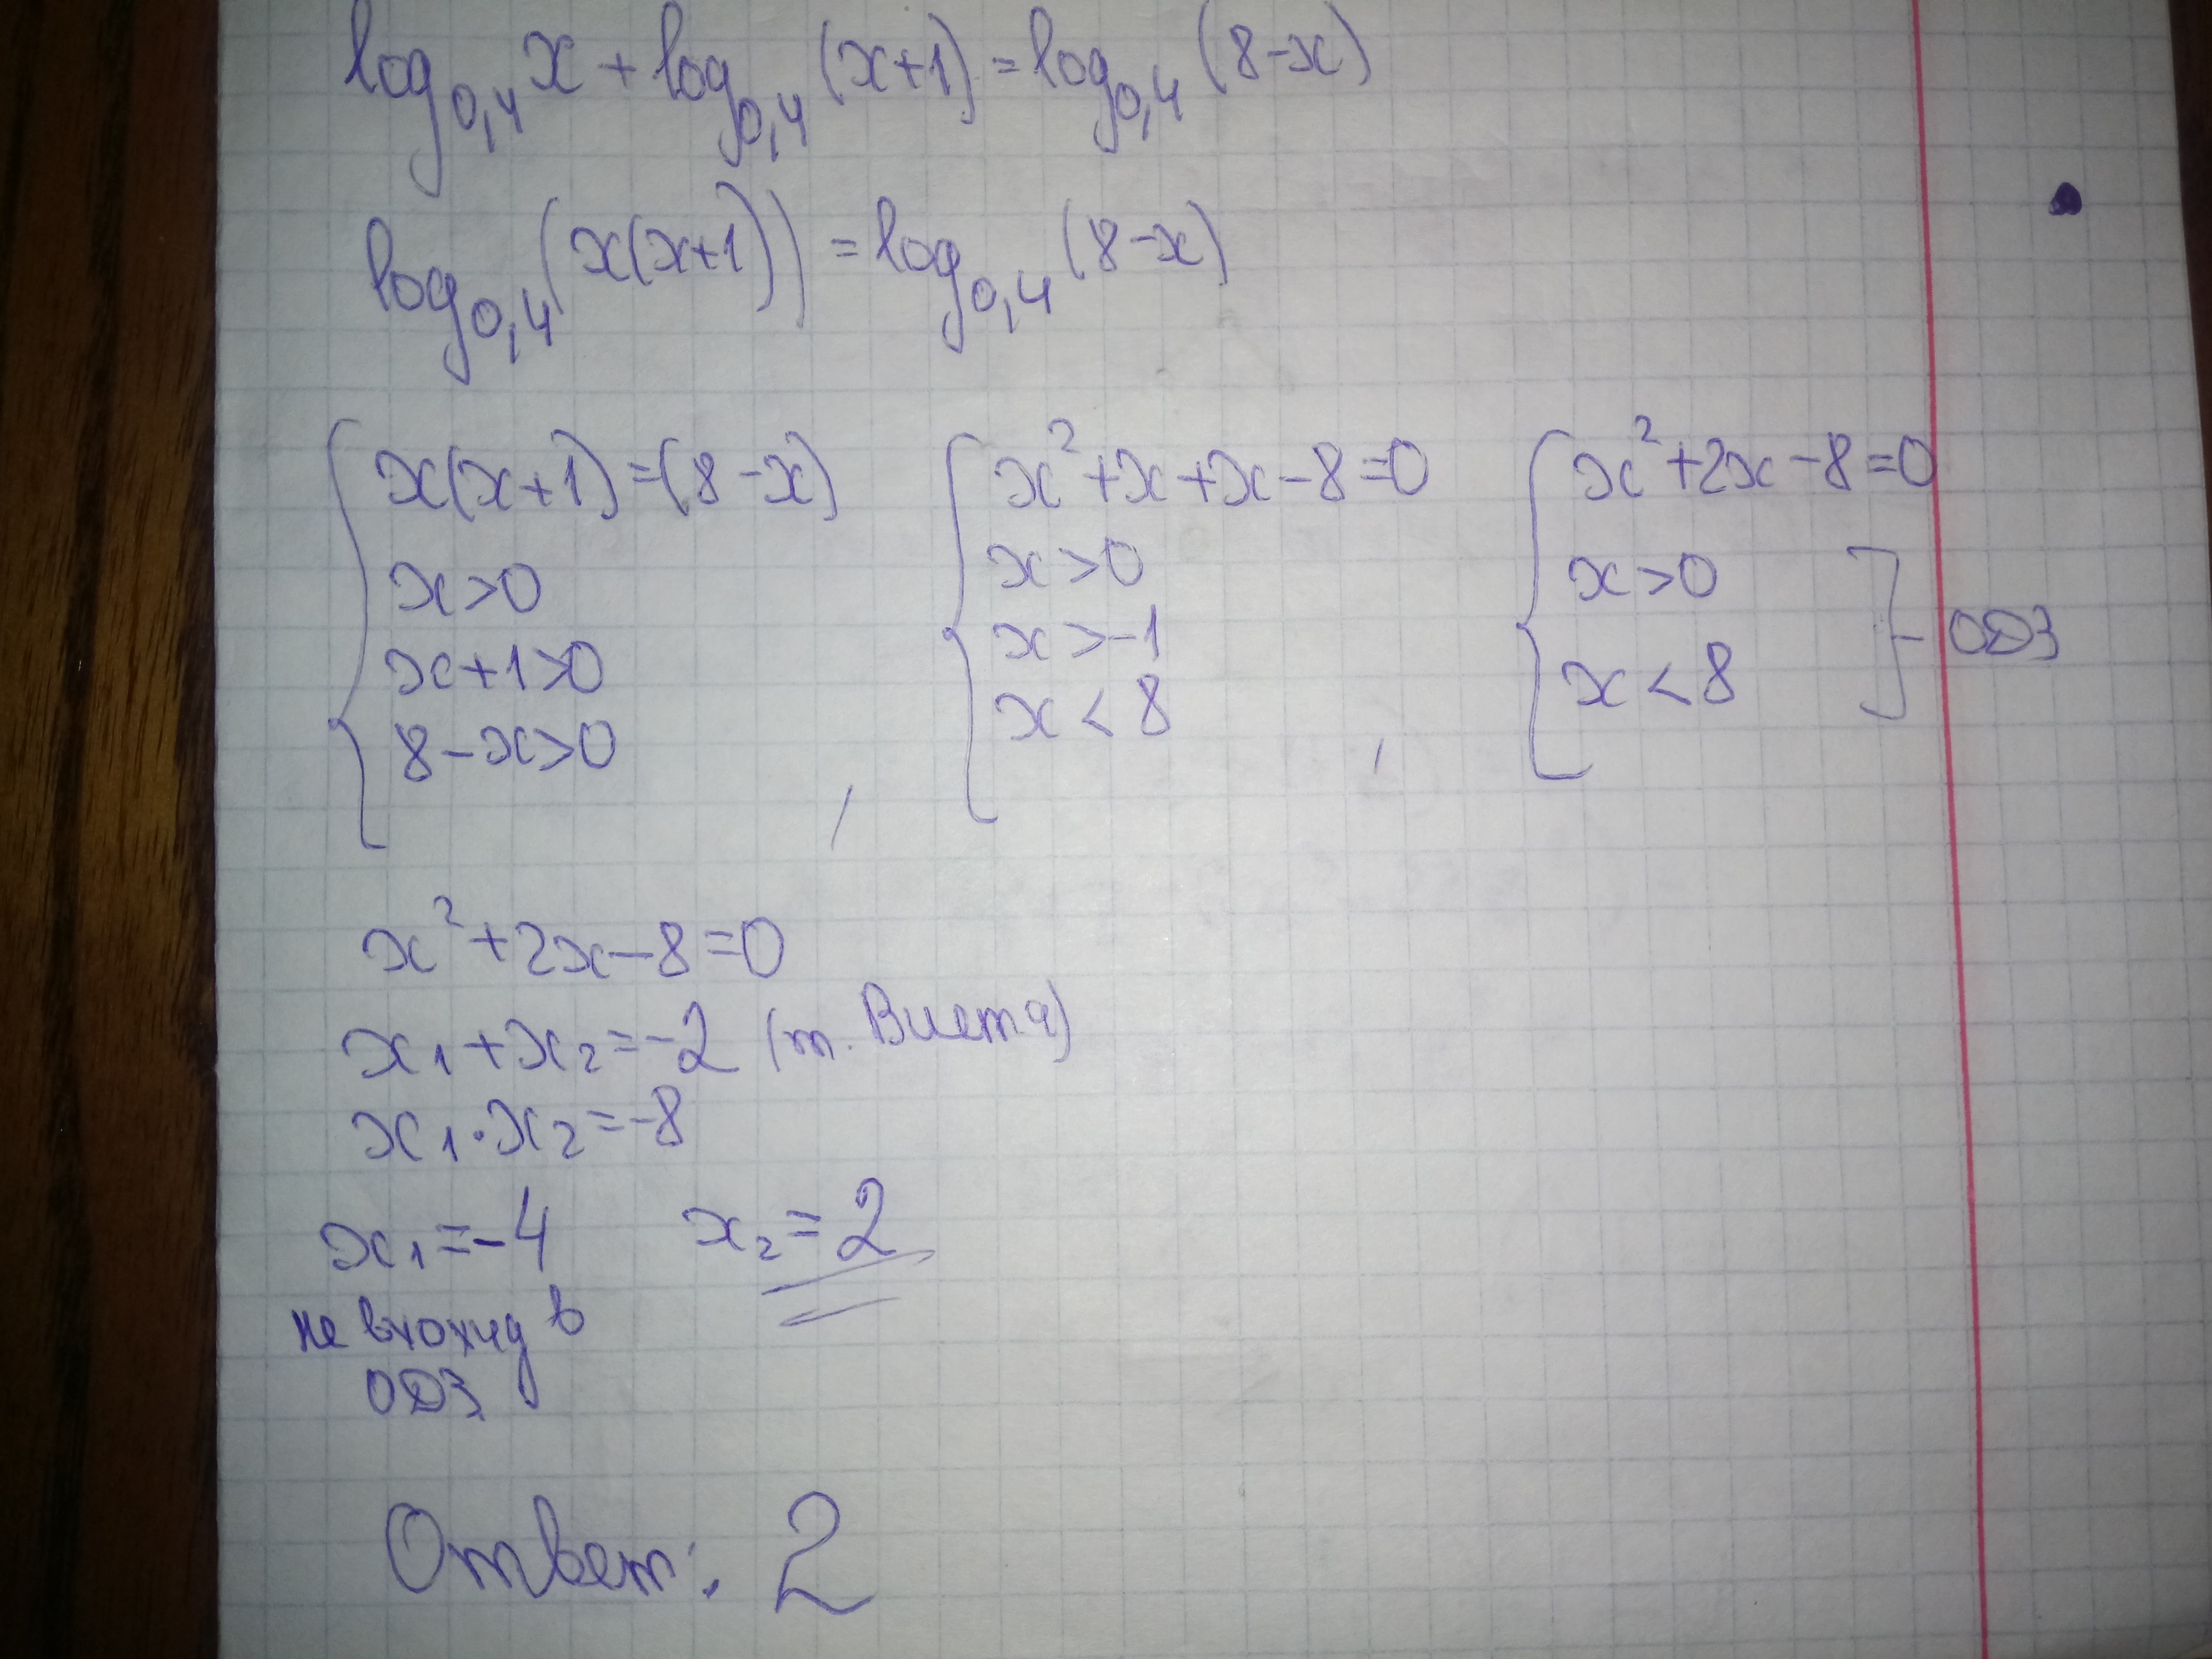 log₀,₄ x + log₀,₄ (x+1) = log₀,₄ (8-x)
log₀,₄ (x(x+1)) = log₀,₄ (8-x)
x(x+1)=(8-x)
x>0
x+1>0
8-x>0 ,
x²+x+x-8=0
x>0
x>-1
x<8 ,
x²+2x-8=0
x>0
x<8
ОДЗ
x²+2x-8=0
x₁+x₂=-2 (т. Виета)
x₁·x₂=-8
x₁=-4 x₂=2
не входид в
ОДЗ
Ответ: 2